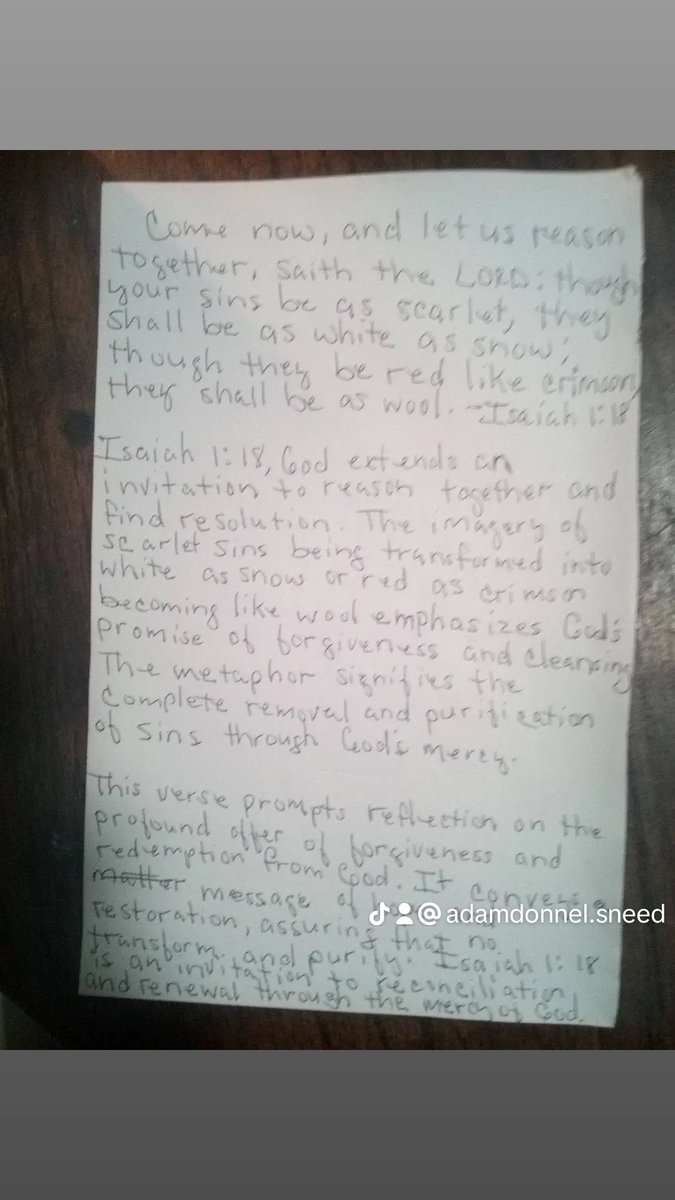 Come now, and let us reason
together, saith the LORD: though
your sins be as scarlet, they
shall be as white as snow;
though they be red like crimson,
they shall be as wool. -Isaiah 1:18
Isaiah 1:18, God extends an
invitation to reason together and
find resolution. The imagery of
scarlet sins being transformed into
white as snow or red as crimson
becoming like wool emphasizes God's
promise of forgiveness and cleansing
The metaphor signifies the
complete removal and purification
of sins through God's mercy.
This verse prompts reflection on the
profound offer of forgiveness and
redemption from God. It conveys a
matter message of
@adamdonnel.sneed
restoration, assuring that no
transform, and purify. Isaiah 1:18
is an invitation to reconciliation
and renewal through the mercy of God.